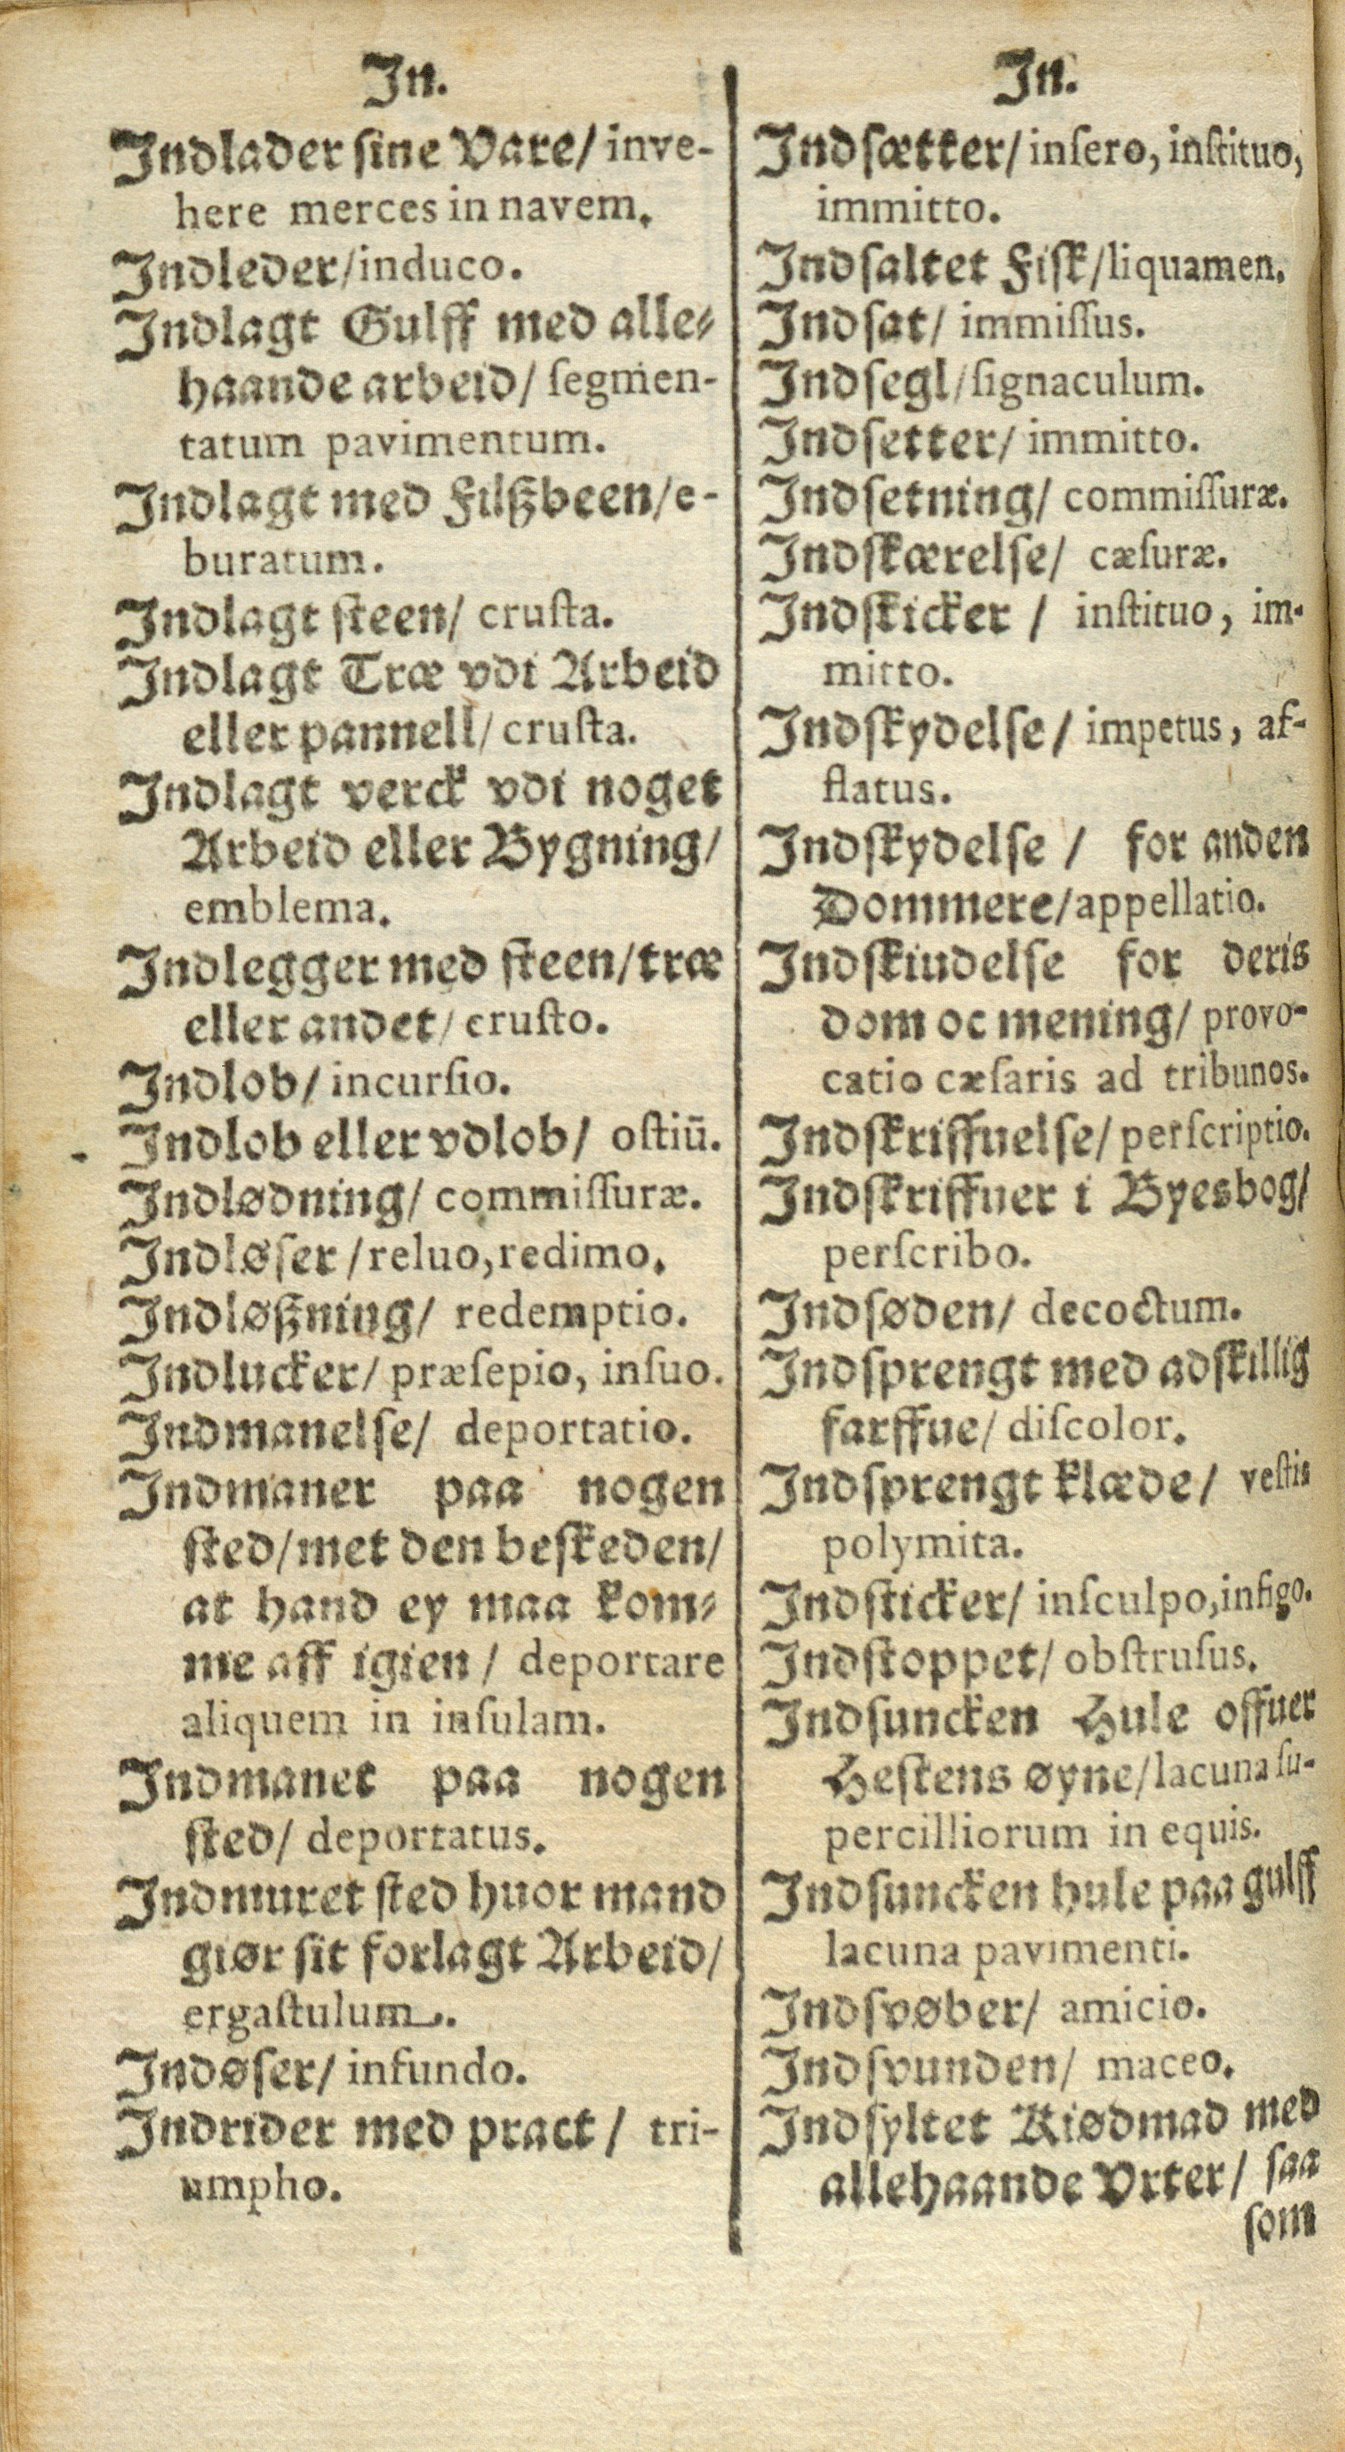 In.
Indlader sine Vare/ inve-
here merces in navem.
Indleder/induco.
Indlagt Gulff med alle-
haande arbeid/ ſegmen-
tatum pavimentum.
Indlagt med Filßbeen/e-
buratum.
Indlagt ſteen/ cruſta.
Indlagt Træ vdi Arbeid
eller pannell/ cruſta.
Indlagt verck vdi noget
Arbeid eller Bygning/
emblema.
Indlegger med ſteen/træ
eller andet/ cruſto.
Indlob/ incurſio.
Indlob eller vdlob/ oſtiū.
Indlødning/ commiſſuræ.
Indløſer /reluo,redimo.
Indløßning/ redemptio.
Indlucker/ præſepio, inſuo.
Indmanelſe/ deportatio.
Indmaner paa nogen
ſted/met den beſkeden/
at hand ey maa kom-
me aff igien / deportare
aliquem in inſulam.
Indmanet paa nogen
ſted/ deportatus.
Indmuret ſted huor mand
giør ſit forlagt Arbeid/
ergaſtulum.
Indøſer/ infundo.
Indrider med pract / tri-
umpho.
In.
Indſætter/ inſero, inſtituo,
immitto.
Indſaltet Fiſk/liquamen.
Indſat/ immiſſus.
Indſegl/ſignaculum.
Indſetter/ immitto.
Indſetning/ commiſſuræ.
Indſkærelſe/ cæſuræ.
Indſkicker / inſtituo, im-
mitto.
Indſkydelſe/ impetus, af-
flatus.
Indſkydelſe / for anden
Dommere/appellatio.
Indſkiudelſe for deris
dom oc mening/ provo-
catio cæſaris ad tribunos.
Indſkriffuelſe/ perſcriptio.
Indſkriffuer i Byesbog/
perſcribo.
Indſøden/ decoctum.
Indſprengt med adſkillig
farffue/ diſcolor.
Indſprengt klæde/ veſtis
polymita.
Indſticker/ inſculpo,infigo.
Indſtoppet/ obſtruſus.
Indſuncken Hule offuer
Heſtens øyne/lacuna ſu-
percilliorum in equis.
Indſuncken hule paa gulff
lacuna pavimenti.
Indſvøber/ amicio.
Indſvunden/ maceo.
Indſyltet Kiødmad med
allehaande Vrter/ ſaa
ſom